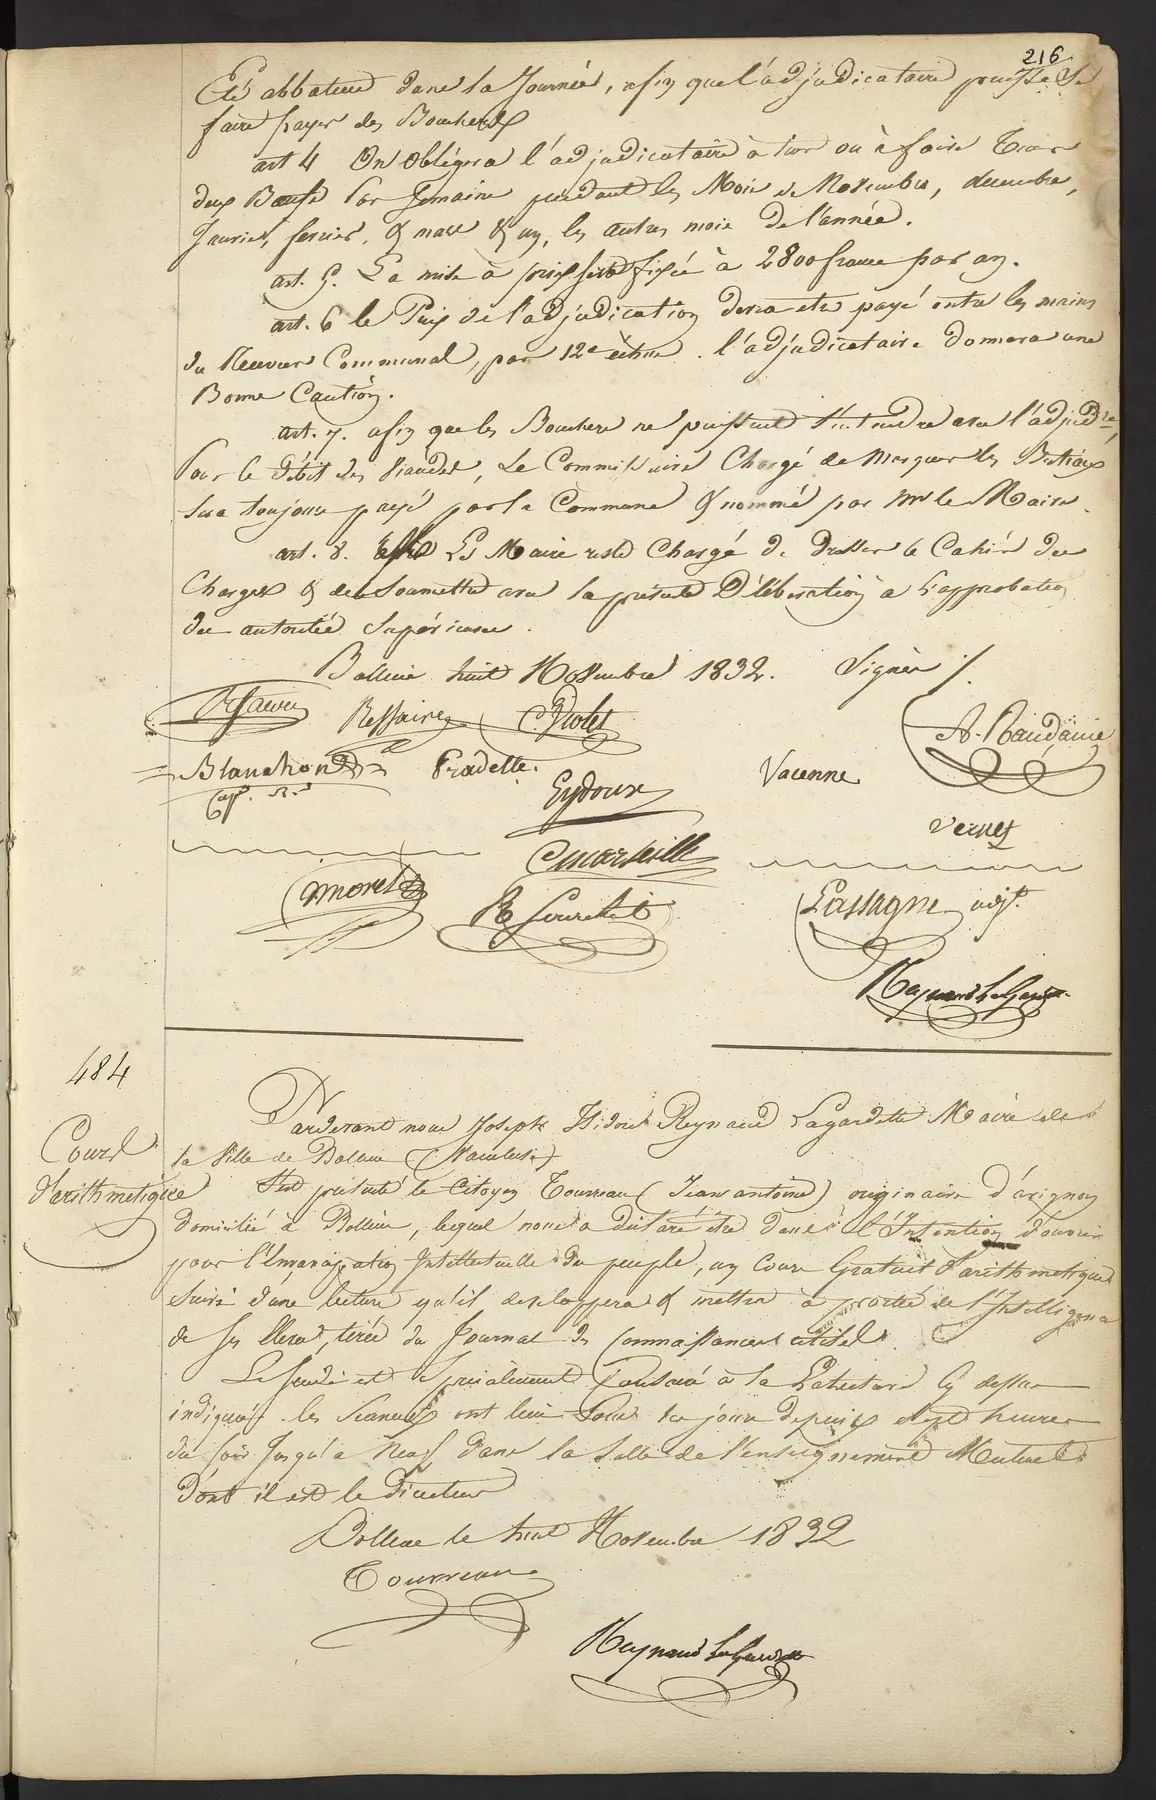 216
Eté abbatue dans la Journée, afin que l'adjudicataire puisse se
faire payer des Bouchers
art 4 On obligera l'adjudicataire à tuer ou à faire Tuer
deux Bœufs Par Semaine pendant les Mois de Novembre, decembre,
Janvier, fevrier, & mars & un, les autres mois de l'année.
art. 5. La mise à prix sera fixée à 2800 francs par an.
art. 6 le Prix de l'adjudication devra etre payé entre les mains
du Receveur Communal, par 12e échue. l'adjudicataire donnera une
Bonne Caution.
art. 7. afin que les Bouchers ne puissent s'entendre avec l'adjudre,
Pour le Débit des Viandes, Le Commissaire Chargé de Marquer les Bestiaux
sera toujours payé par la Commune & nommé par Mr le Maire.
art. 8. Le Maire reste Chargé de Dresser le Cahier des
Charges & de Soumettre avec la présente Délibération à L'approbation
des autorités Supérieures.
Bollene huit Novembre 1832. Signés /.
Ressaire Violet
A. Naudanie
Blanchond Pradelle. Eydoux Vacenne
Vernet
Marseille
Morel R Sourchet Lassagne adjt.
Reynaud LaGardette
484
Cours
d'arithmetique
Pardevant nous Joseph Isidore Reynaud Lagardette Maire de
la Ville de Bollene (Vaucluse)
S'est présenté le Citoyen Tourreau (Jean antoine) originaire d'avignon
Domicilié à Bollene, lequel nous a déclaré être dans l'Intention d'ouvrir
pour l'Emancipation Intellectuelle du peuple, un Cours Gratuit d'arithmetique
Suivi d'une lecture qu'il developpera & mettra à portée de l'Intelligence
de ses Eleves, tirée du Journal des Connaissances utiles.
Le Jeudi est Specialement Consacré à la Lecture Cy dessus
indiquée. les Seances ont lieu tous les jours depuis sept heures
du soir Jusqu'à Neuf dans la Salle de l'enseignement Mutuel
Dont il est le Directeur
Bollene le huit Novembre 1832
Tourreau
Reynaud LaGardette